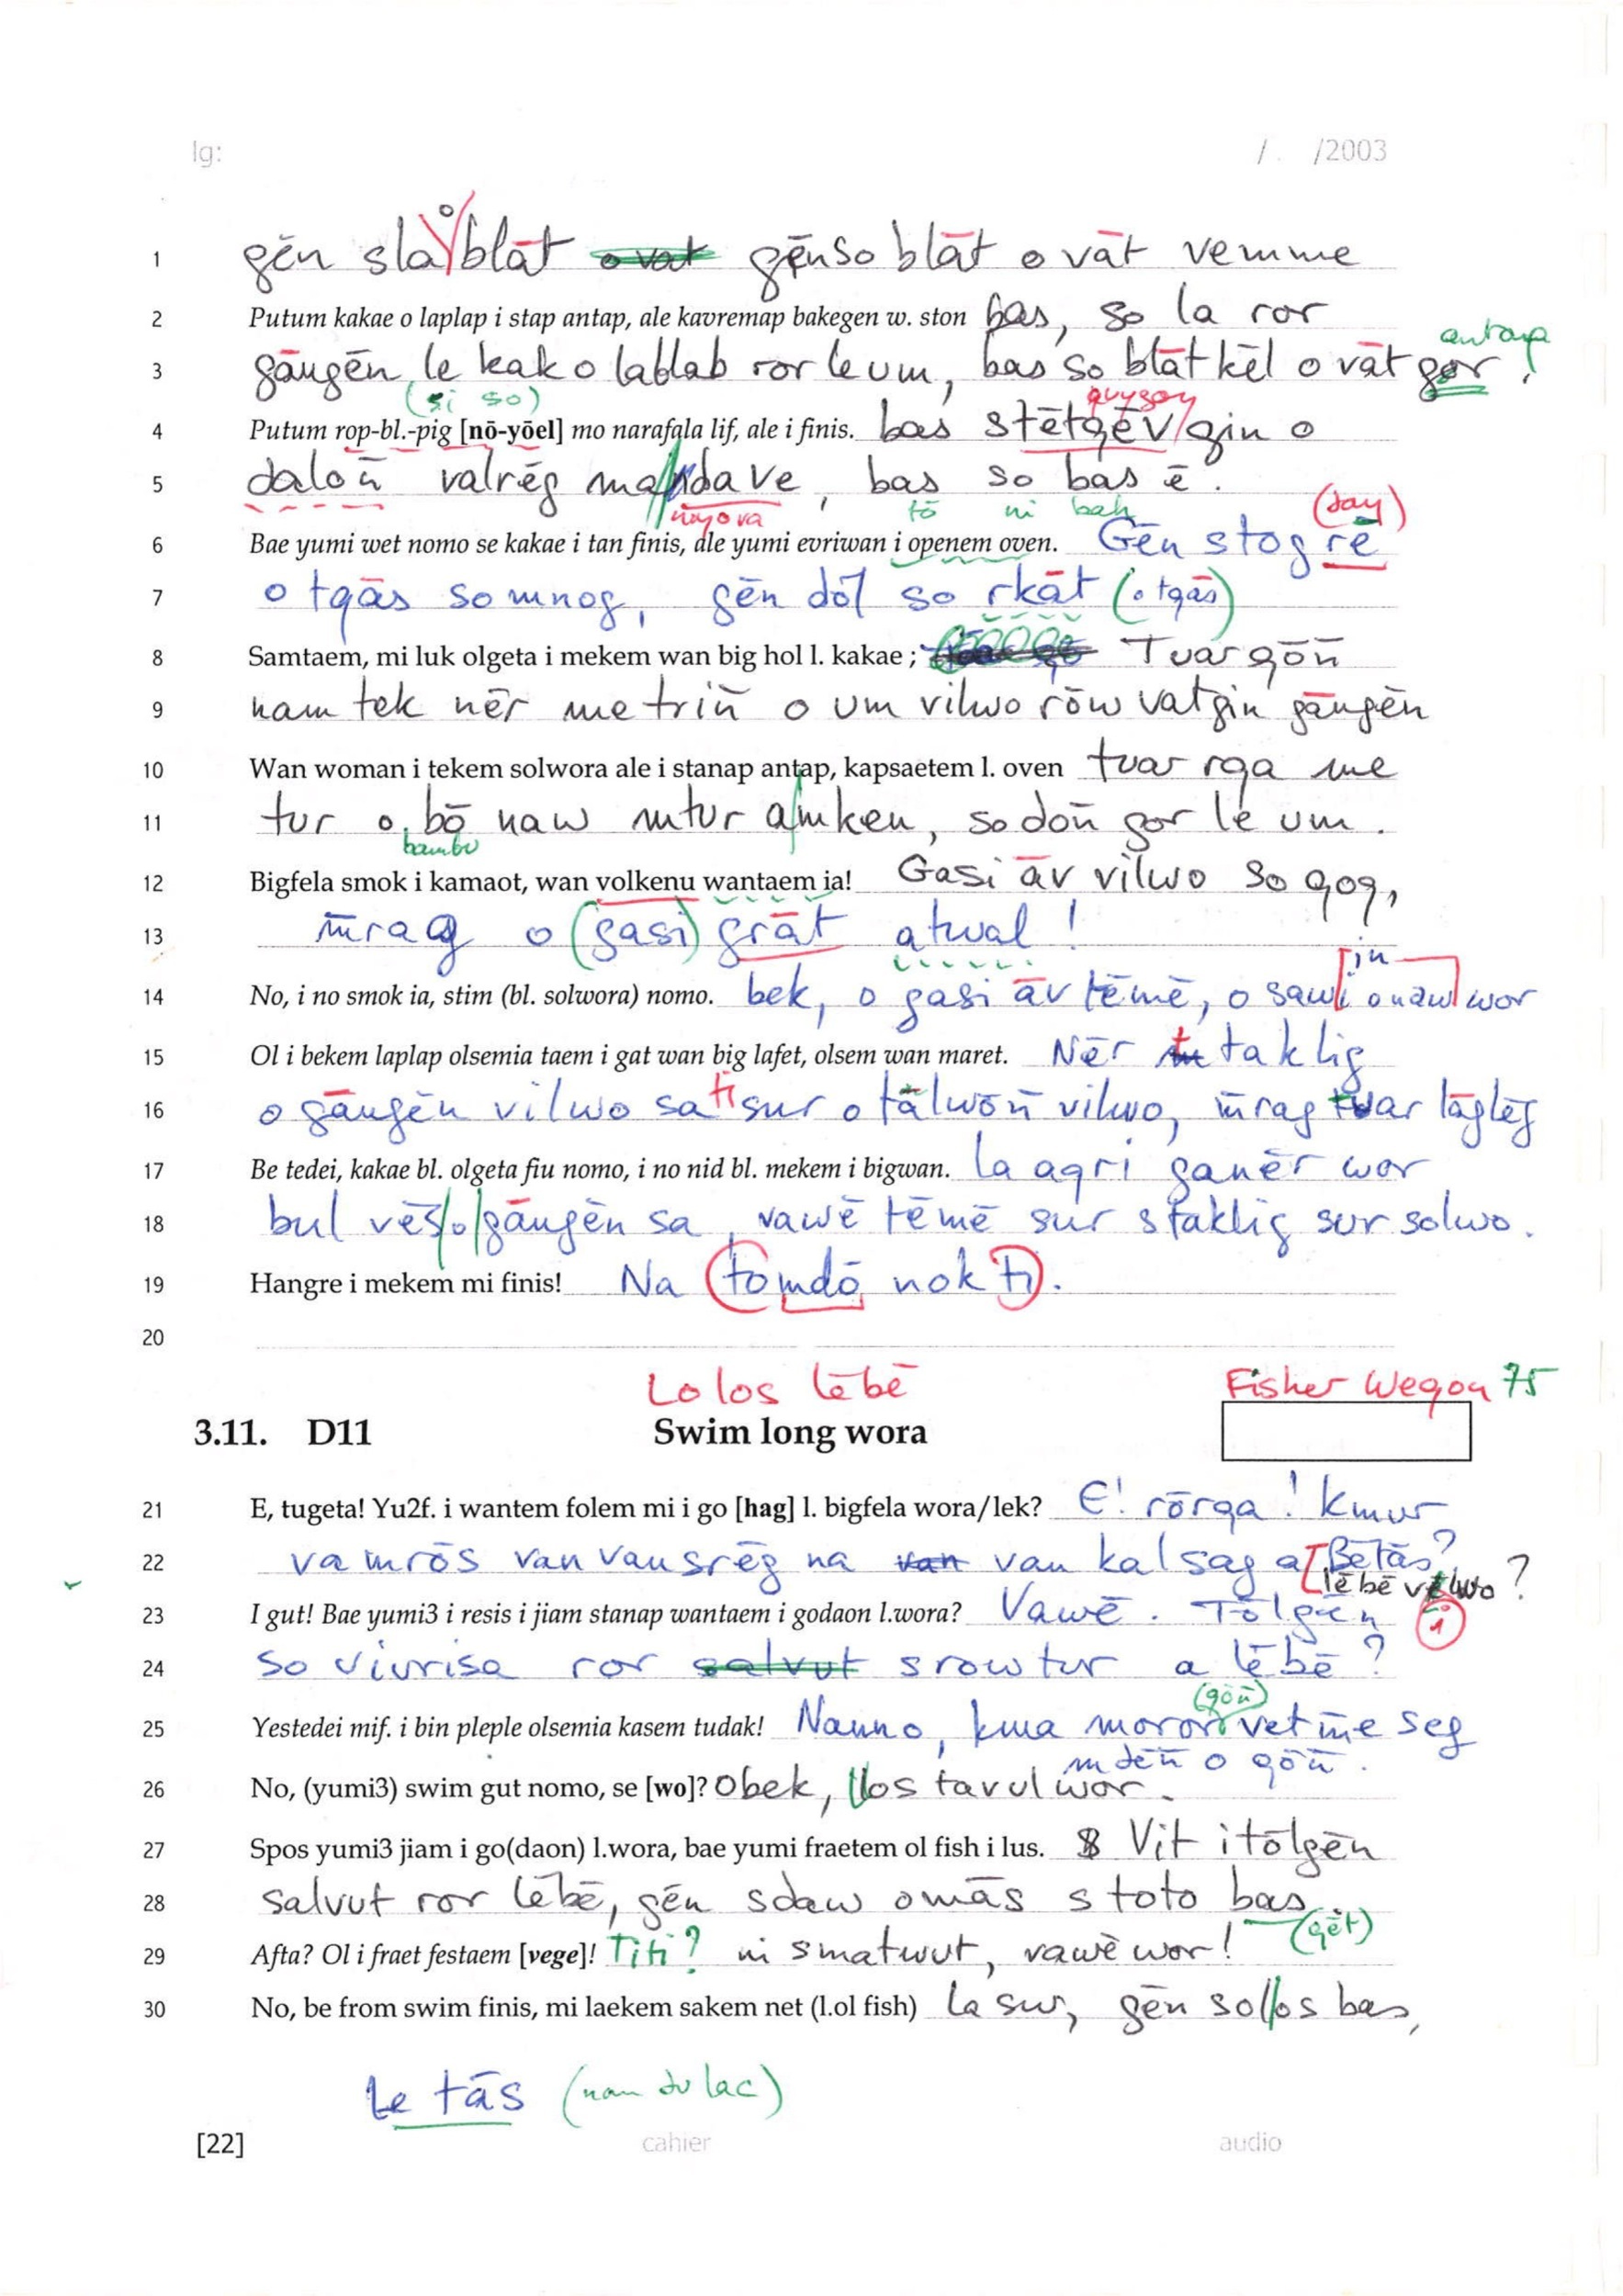 lg: / . /2003
1 gēn sla blāt gēnso blāt o vāt vemme
2 Putum kakae o laplap i stap antap, ale kavremap bakegen w. ston bas, so la ror
antap
3 gāngēn le keak o lablab ror le um, bas so blāt kēl o vāt gor !
(si so)
4 Putum rop-bl.-pig [nō-yōel] mo narafala lif, ale i finis. bas stētgēv gin o
5 daloñ valrēg dave, bas so bas ē.
tō ni bah
6 Bae yumi wet nomo se kakae i tan finis, ale yumi evriwan i openem oven. Gēn stog rē
7 o tqās so mnog, gēn dōl so rkāt (o tqās)
8 Samtaem, mi luk olgeta i mekem wan big hol l. kakae ; Tvar qōñ
9 nam tek nēr me triñ o um vilwo rōw vatgin gāngēn
10 Wan woman i tekem solwora ale i stanap antap, kapsaetem l. oven tvar rqa me
11 tur o bō naw mtur amken, so doñ gor le um.
bambu
12 Bigfela smok i kamaot, wan volkenu wantaem ia! Gasi āv vilwo so qoq,
13 m̄rag o (gasi) grāt atwal !
in
14 No, i no smok ia, stim (bl. solwora) nomo. bek, o gasi āv tēmē, o saw i o naw wor
15 Ol i bekem laplap olsemia taem i gat wan big lafet, olsem wan maret. Nēr taklig
16 o gāngēn vilwo sa ti sur o tālwōñ vilwo, m̄rag tvar lāglēg
17 Be tedei, kakae bl. olgeta fiu nomo, i no nid bl. mekem i bigwan. la aqri ganēr wor
18 bul vēs o gāngēn sa, vawē tēmē sur staklig sur solwo.
19 Hangre i mekem mi finis! Na tomdō nok ti.
20
Lolos lēbē Fisher Wegon 75
3.11. D11 Swim long wora
21 E, tugeta! Yu2f. i wantem folem mi i go [hag] l. bigfela wora/lek? E! rōrqa! kmur
22 va mrōs van van srēg na van kal sag a Bētās?
lēbē vilwo ?
23 I gut! Bae yumi3 i resis i jiam stanap wantaem i godaon l.wora? Vawē. Tōlgēn
24 so vivrisa ror salvut srow tur a lēbē ?
(qōñ)
25 Yestedei mif. i bin pleple olsemia kasem tudak! Nanno, kma moror vet m̄e seg
mdēñ o qōñ.
26 No, (yumi3) swim gut nomo, se [wo]? Obek, llos tavul wor.
27 Spos yumi3 jiam i go(daon) l.wora, bae yumi fraetem ol fish i lus. Vit i tōlgēn
28 salvut ror lēbē, gēn sdaw o mās stoto bas
(qēt)
29 Afta? Ol i fraet festaem [vege]! Titi? ni smatwut, vawē wor!
30 No, be from swim finis, mi laekem sakem net (l.ol fish) la sur, gēn sollos bas,
Le tās (nom du lac)
[22] cahier audio